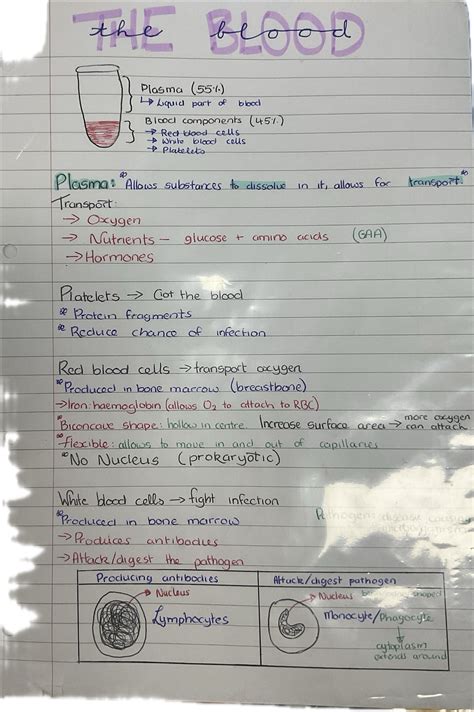 THE BLOOD
the blood
Plasma (55%)
↳ Liquid part of blood
Blood components (45%)
→ Red blood cells
→ White blood cells
→ Platelets
Plasma: * Allows substances to dissolve in it, allows for transport. *
Transport:
→ Oxygen
→ Nutrients – glucose + amino acids (GAA)
→ Hormones
Platelets → Clot the blood
* Protein fragments
* Reduce chance of infection
Red blood cells → transport oxygen
* Produced in bone marrow (breastbone)
→ Iron: haemoglobin (allows O2 to attach to RBC)
* Biconcave shape: hollow in centre. Increase surface area → more oxygen can attach
* flexible: allows to move in and out of capillaries
* No Nucleus (prokaryotic)
White blood cells → fight infection
* Produced in bone marrow
Pathogen: disease causing
→ Produces antibodies
→ Attack/digest the pathogen
Producing antibodies
→ Nucleus
Lymphocytes
Attack/digest pathogen
→ Nucleus shaped
Monocyte/Phagocyte
↓
cytoplasm
extends around